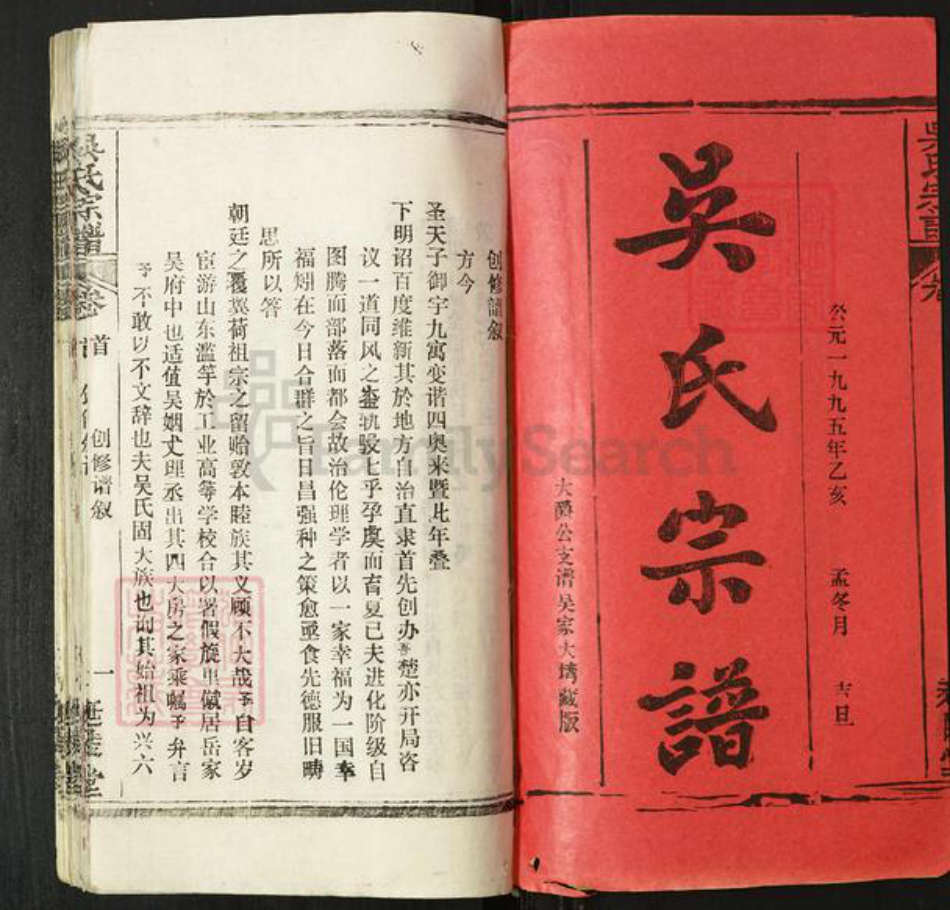 公元一九九五年乙亥 孟冬月 吉旦
吴氏宗譜
大爵公支谱吴宗大塆藏版
创修谱叙
方今
圣天子御宇九寓变谐四奥来暨比年叠
下明诏百度维新其於地方自治直隶首先创办吾楚亦开局咨
议一道同风之盛轨骎骎乎孕虞而育夏已夫进化阶级自
图腾而部落而都会故治伦理学者以一家幸福为一国幸
福矧在今日合群之旨日昌强种之策愈亟食先德服旧畴
思所以答
朝廷之覆冀荷祖宗之留贻敦本睦族其义顾不大哉予自客岁
宦游山东滥竽於工业高等学校合以署假旋里僦居岳家
吴府中也适值吴姻丈理丞出其四大房之家乘嘱予弁言
予不敢以不文辞也夫吴氏固大族也询其始祖为兴六
吴氏宗譜 卷首 创修谱叙 一
FamilySearch